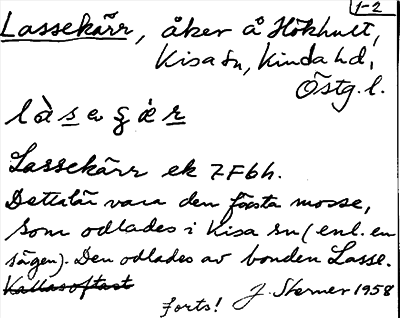 1-2
Lassekärr, åker å Hökhult,
Kisa sn, Kinda hd,
Östg. l.
Lassekärr ek 7F6h.
Detta lär vara den första mosse,
som odlades i Kisa sn (enl. en
sägen). Den odlades av bonden Lasse.
Kallas oftast
forts! J. Sterner 1958